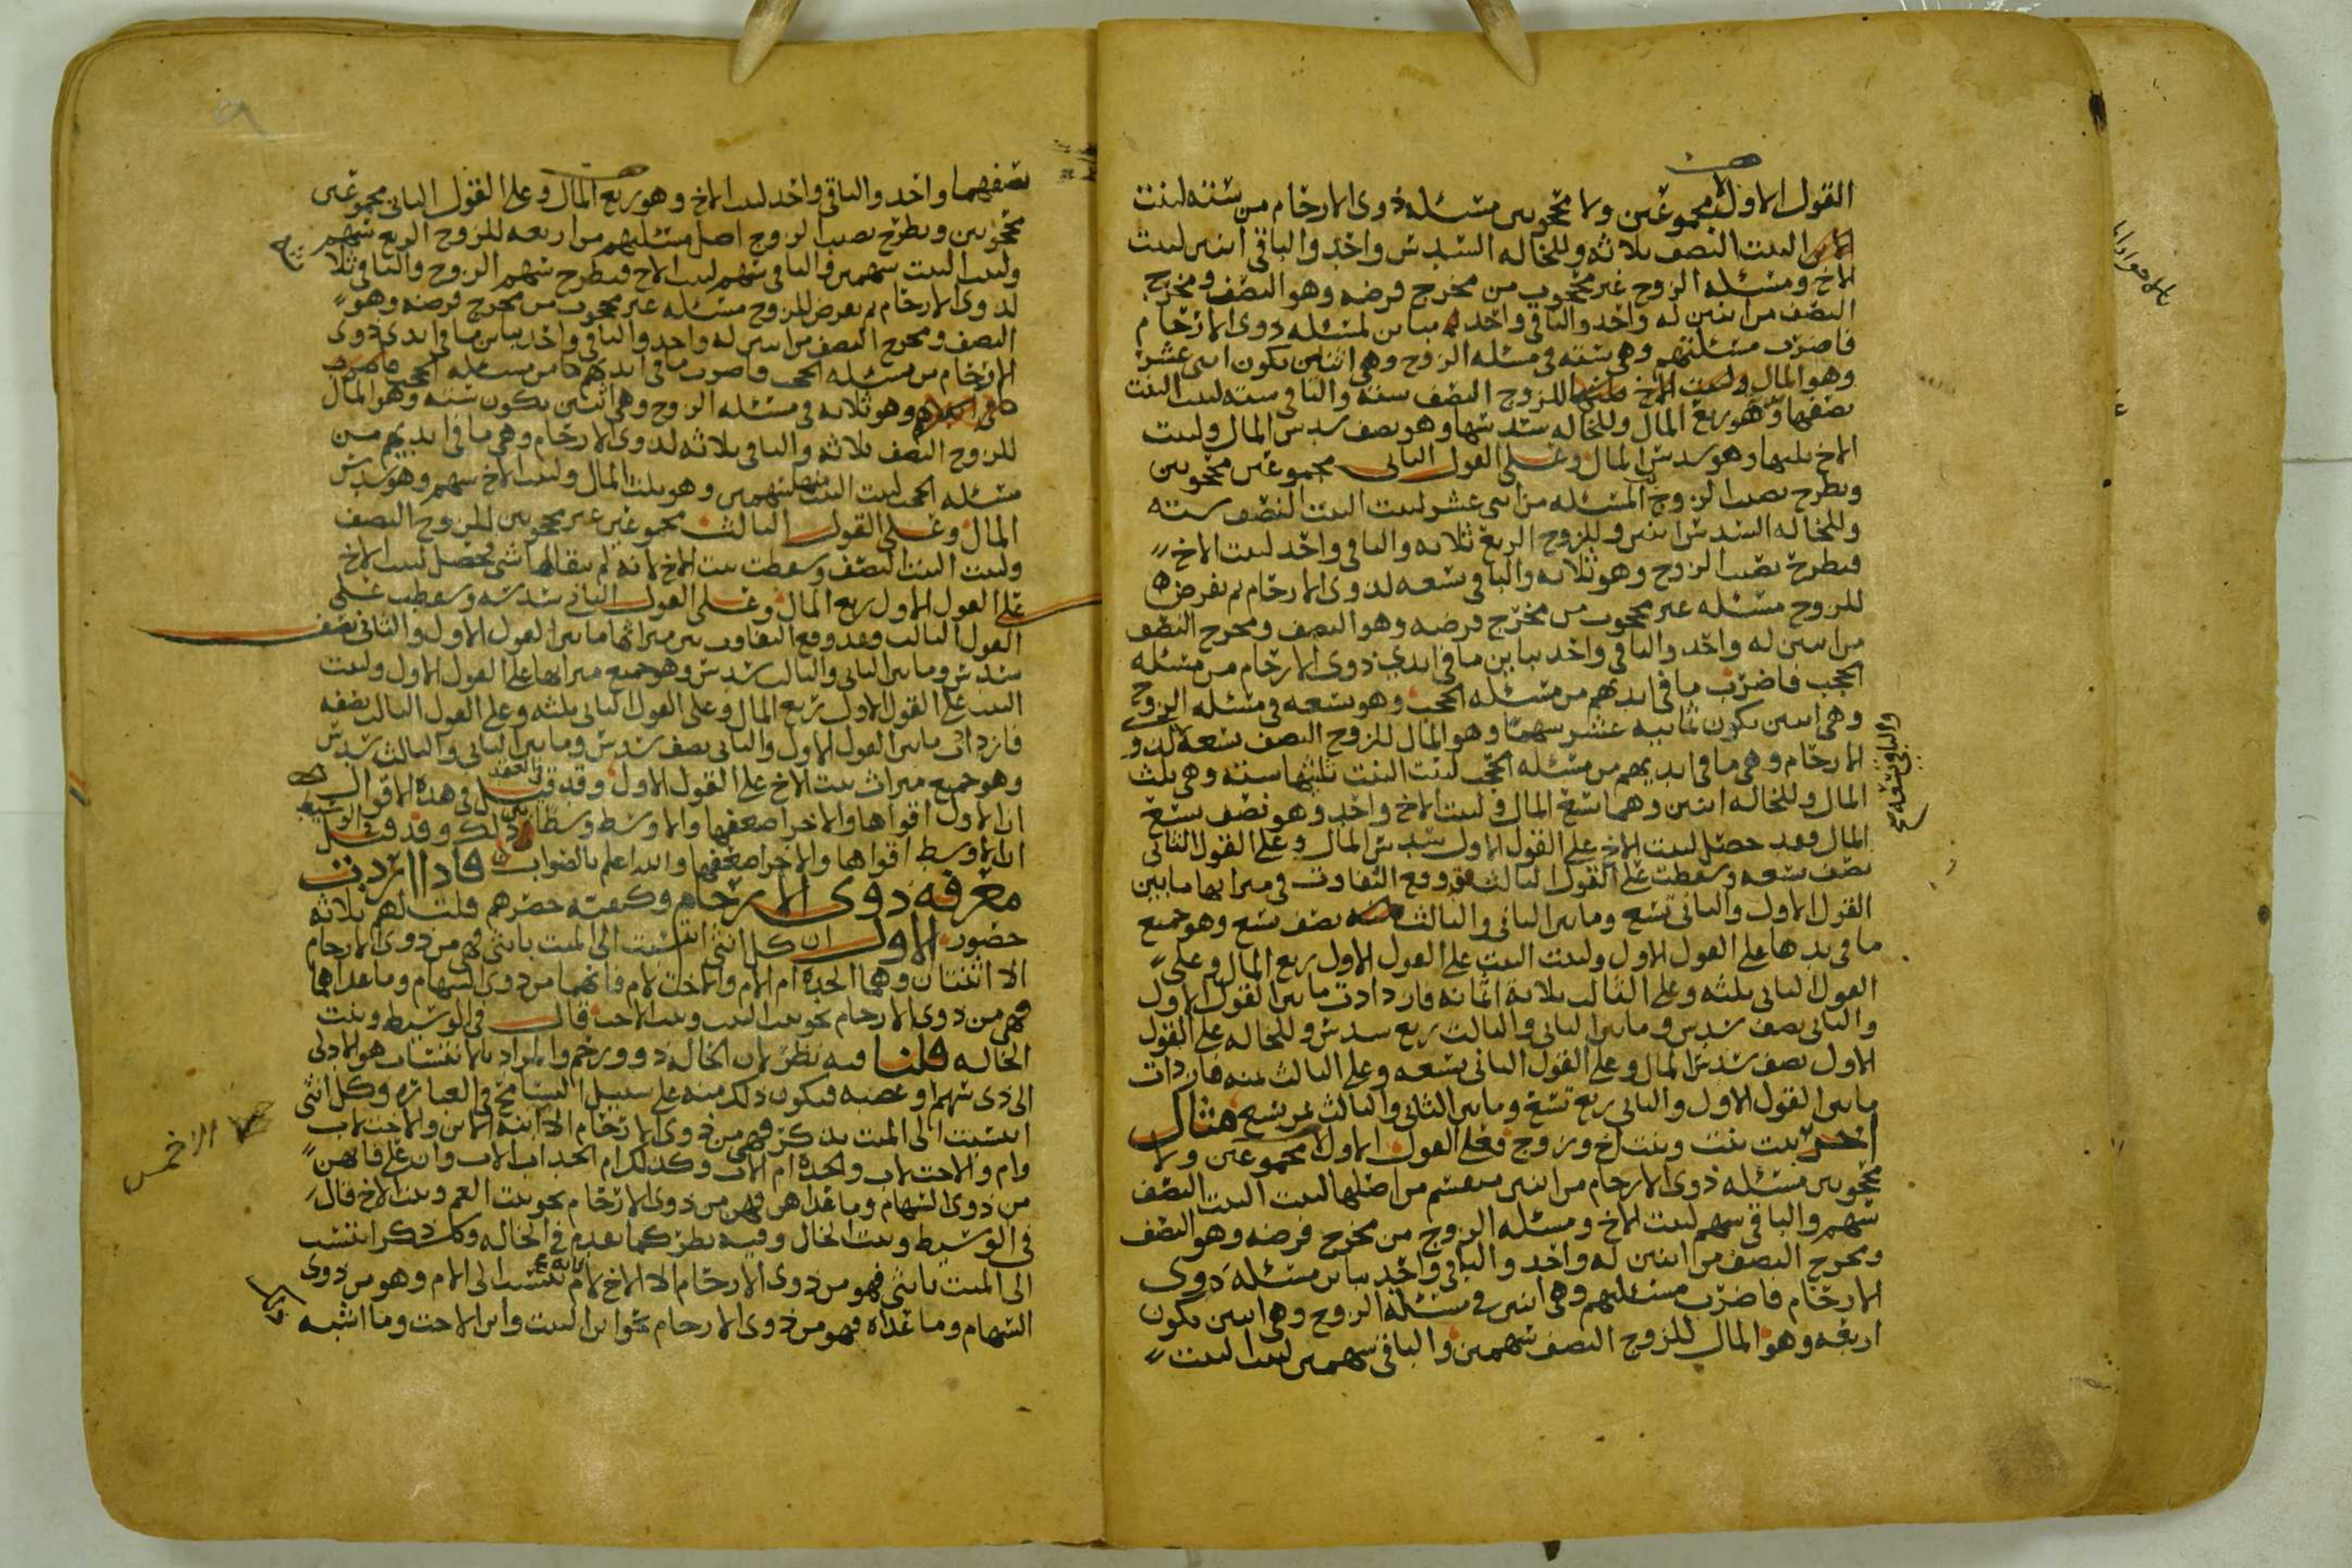 القول الاول لا مجموعين ولا محجوبين مسئله ذوى الارحام من سته لبنت
البنت النصف ثلاثه وللخاله السدس واحد والباقى اثنين لبنت
الاخ ومسئله الزوج غير محجوب من مخرج فرضه وهو النصف ومخرج
النصف من اثنين له واحد والباقى واحد مباين لمسئله ذوى الارحام
فاضرب مسئلتهم وهى سته فى مسئله الزوج وهى اثنين يكون اثنى عشر
وهو المال للزوج النصف سته والباقى سته لبنت البنت
نصفها وهو ربع المال وللخاله سدسها وهو نصف سدس المال ولبنت
الاخ ثلثها وهو سدس المال وعلى القول الثانى مجموعين محجوبين
ويطرح نصيب الزوج المسئله من اثنى عشر لبنت البنت النصف سته
وللخاله السدس اثنين وللزوج الربع ثلاثه والباقى واحد لبنت الاخ
فيطرح نصيب الزوج وهو ثلاثه والباقى تسعه لذوى الارحام ثم نفرض
للزوج مسئله غير محجوب من مخرج فرضه وهو النصف ومخرج النصف
من اثنين له واحد والباقى واحد يباين ما فى ايدي ذوى الارحام من مسئله
الحجب فاضرب ما فى ايديهم من مسئله الحجب وهو تسعه فى مسئله الزوج
وهى اثنين يكون ثمانيه عشر سهما وهو المال للزوج النصف تسعه لذوى
والباقى تسعه
الارحام وهى ما فى ايديهم من مسئله الحجب لبنت البنت ثلثيها سته وهى ثلث
المال وللخاله اثنين وهما تسع المال ولبنت الاخ واحد وهو نصف تسع
المال فقد حصل لبنت الاخ على القول الاول سدس المال وعلى القول الثانى
نصف تسعه وسقطت على القول الثالث فوقع التفاوت فى ميراثها ما بين
القول الاول والثانى تسع وما بين الثانى والثالث نصف تسع وهو جميع
ما فى يدها على القول الاول ولبنت البنت على القول الاول ربع المال وعلى
القول الثانى ثلثه وعلى الثالث ثلاثة اثمانه فازدادت ما بين القول الاول
والثانى نصف سدس وما بين الثانى والثالث ربع سدس وللخاله على القول
الاول نصف سدس المال وعلى القول الثانى تسعه وعلى الثالث ثمنه فازدادت
ما بين القول الاول والثانى ربع تسع وما بين الثانى والثالث ثمن تسع مثال
اخر بنت بنت وبنت اخ وزوج فعلى القول الاول لا مجموعين ولا
محجوبين مسئله ذوى الارحام من اثنين منقسم من اصلها لبنت البنت النصف
سهم والباقى سهم لبنت الاخ ومسئله الزوج من مخرج فرضه وهو النصف
ومخرج النصف من اثنين له واحد والباقى واحد يباين مسئله ذوى
الارحام فاضرب مسئلتهم وهى اثنين فى مسئلة الزوج وهى اثنين يكون
اربعه وهو المال للزوج النصف سهمين والباقى سهمين لبنت البنت
نصفهما واحد والباقى واحد لبنت الاخ وهو ربع المال وعلى القول الثانى مجموعين
محجوبين ويطرح نصيب الزوج اصل مسئلتهم من اربعه للزوج الربع سهم
ولبنت البنت سهمين والباقى سهم لبنت الاخ فيطرح سهم الزوج والباقى ثلاثه
لذوى الارحام ثم نفرض للزوج مسئله غير محجوب من مخرج فرضه وهو
النصف ومخرج النصف من اثنين له واحد والباقى واحد يباين ما فى ايدى ذوى
الارحام من مسئله الحجب فاضرب ما فى ايديهم من مسئله الحجب
وهو ثلاثه فى مسئله الزوج وهى اثنين يكون سته وهو المال
للزوج النصف ثلاثه والباقى ثلاثه لذوى الارحام وهى ما فى ايديهم من
مسئله الحجب لبنت البنت منها سهمين وهو ثلث المال ولبنت الاخ سهم وهو سدس
المال وعلى القول الثالث مجموعين غير محجوبين للزوج النصف
ولبنت البنت النصف وسقطت بنت الاخ لانه لم يبقا لها شى فحصل لبنت الاخ
على القول الاول ربع المال وعلى القول الثانى سدسه وسقطت على
القول الثالث وقد وقع التفاوت بين ميراثها ما بين القول الاول والثانى نصف
سدس وما بين الثانى والثالث سدس وهو جميع ميراثها على القول الاول ولبنت
البنت على القول الاول ربع المال وعلى القول الثانى ثلثه وعلى القول الثالث نصفه
فازدادت ما بين القول الاول والثانى نصف سدس وما بين الثانى والثالث سدس
وهو جميع ميراث بنت الاخ على القول الاول وقد قيل فى العقد فى هذه الاقوال
ان الاول اقواها والاخر اضعفها والاوسط وسطا بين ذلك وقد قيل فى الوسيط
ان الاوسط اقواها والاخر اضعفها والله اعلم بالصواب فاذا اردت
معرفه ذوى الارحام وكيفية حصرهم قلت لهم ثلاثه
حضور الاول ان كل انثى انتسبت الى الميت بانثى فهى من ذوى الارحام
الا اثنتان وهما الجده ام الام والاخت لام فانهما من ذوى السهام وما عداهما
فهى من ذوى الارحام نحو بنت البنت وبنت الاخت قال فى الوسيط وبنت
الخاله قلنا فيه نظر لان الخاله ذو ورحم والمراد بالانتساب هو الادلى
الى ذى سهم او عصبه فيكون ذلك منه على سبيل التسامح فى العباره وكل انثى
انتسبت الى الميت بذكر فهى من ذوى الارحام الا ابنة الابن والاخت لاب
وام والاخت لاب والجده ام الاب وكذلك ام الجد اب الاب وان على فانهن
من ذوى السهام وما عداهن فهن من ذوى الارحام نحو بنت العم وبنت الاخ قال
فى الوسيط وبنت الخال وفيه نظر كما تقدم فى الخاله وكل ذكر انتسب
الى الميت بانثى فهو من ذوى الارحام الا الاخ لام فانه ينتسب الى الام وهو من ذوى
السهام وما عداه فهو من ذوى الارحام نحو ابن البنت وابن الاخت وما اشبه